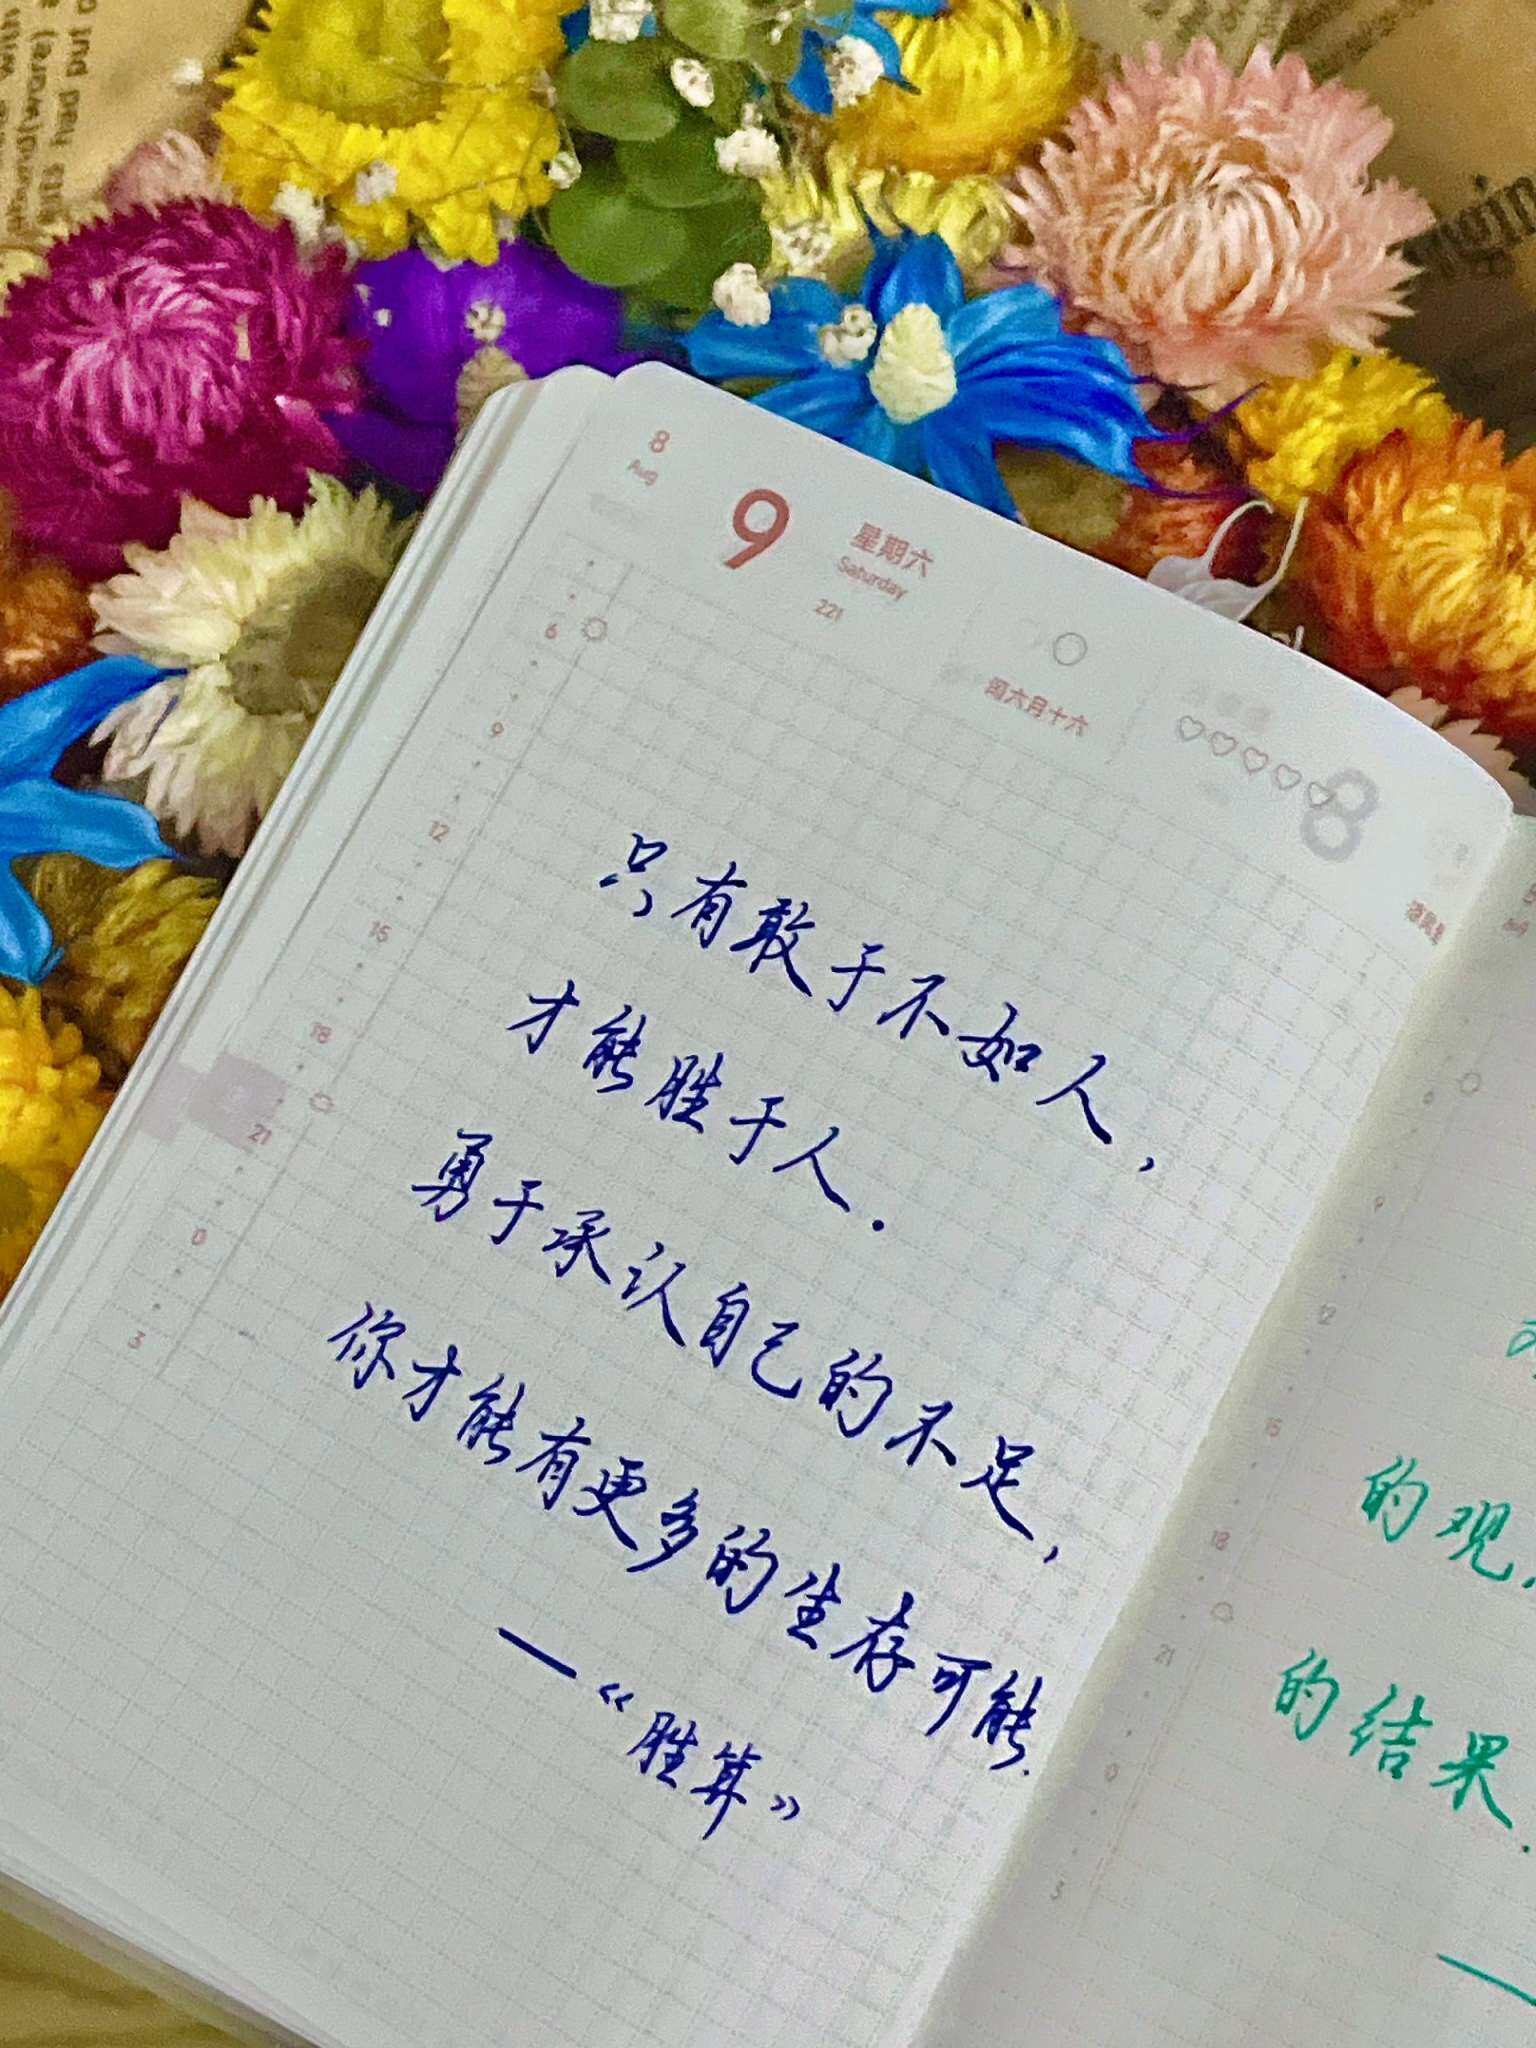 8
Aug
9
星期六
Saturday
221
闰六月十六
8
6
9
12
15
18
21
0
3
只有敢于不如人，
才能胜于人.
勇于承认自己的不足，
你才能有更多的生存可能.
—《胜算》
9
12
15
18
21
0
3
的观
的结果.